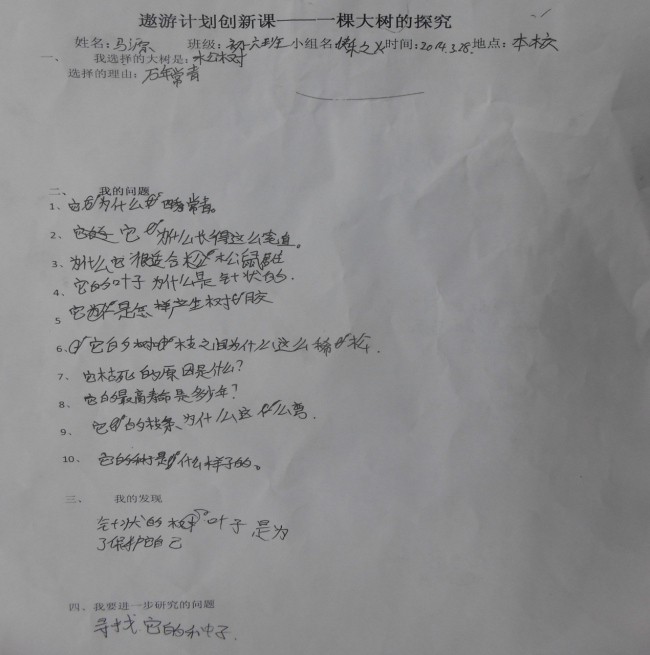 遨游计划创新课——一棵大树的探究
姓名:马 班级:初一六班 小组名 之 时间:2014.3.28.地点:本校
一、 我选择的大树是:松树
选择的理由:万年常青
二、 我的问题
1、它为什么四季常青。
2、它为什么长得这么笔直。
3、为什么它很适合松鼠居住
4、它的叶子为什么是针状的.
5 它是怎样产生树胶
6、它的树枝之间为什么这么稀
7、它枯死的原因是什么?
8、它的最高寿命是多少年?
9、它的枝条、为什么这么弯.
10、它的种子是什么样子的。
三、 我的发现
针状的叶子是为
了保护它自己
四、我要进一步研究的问题
寻找它的种子.